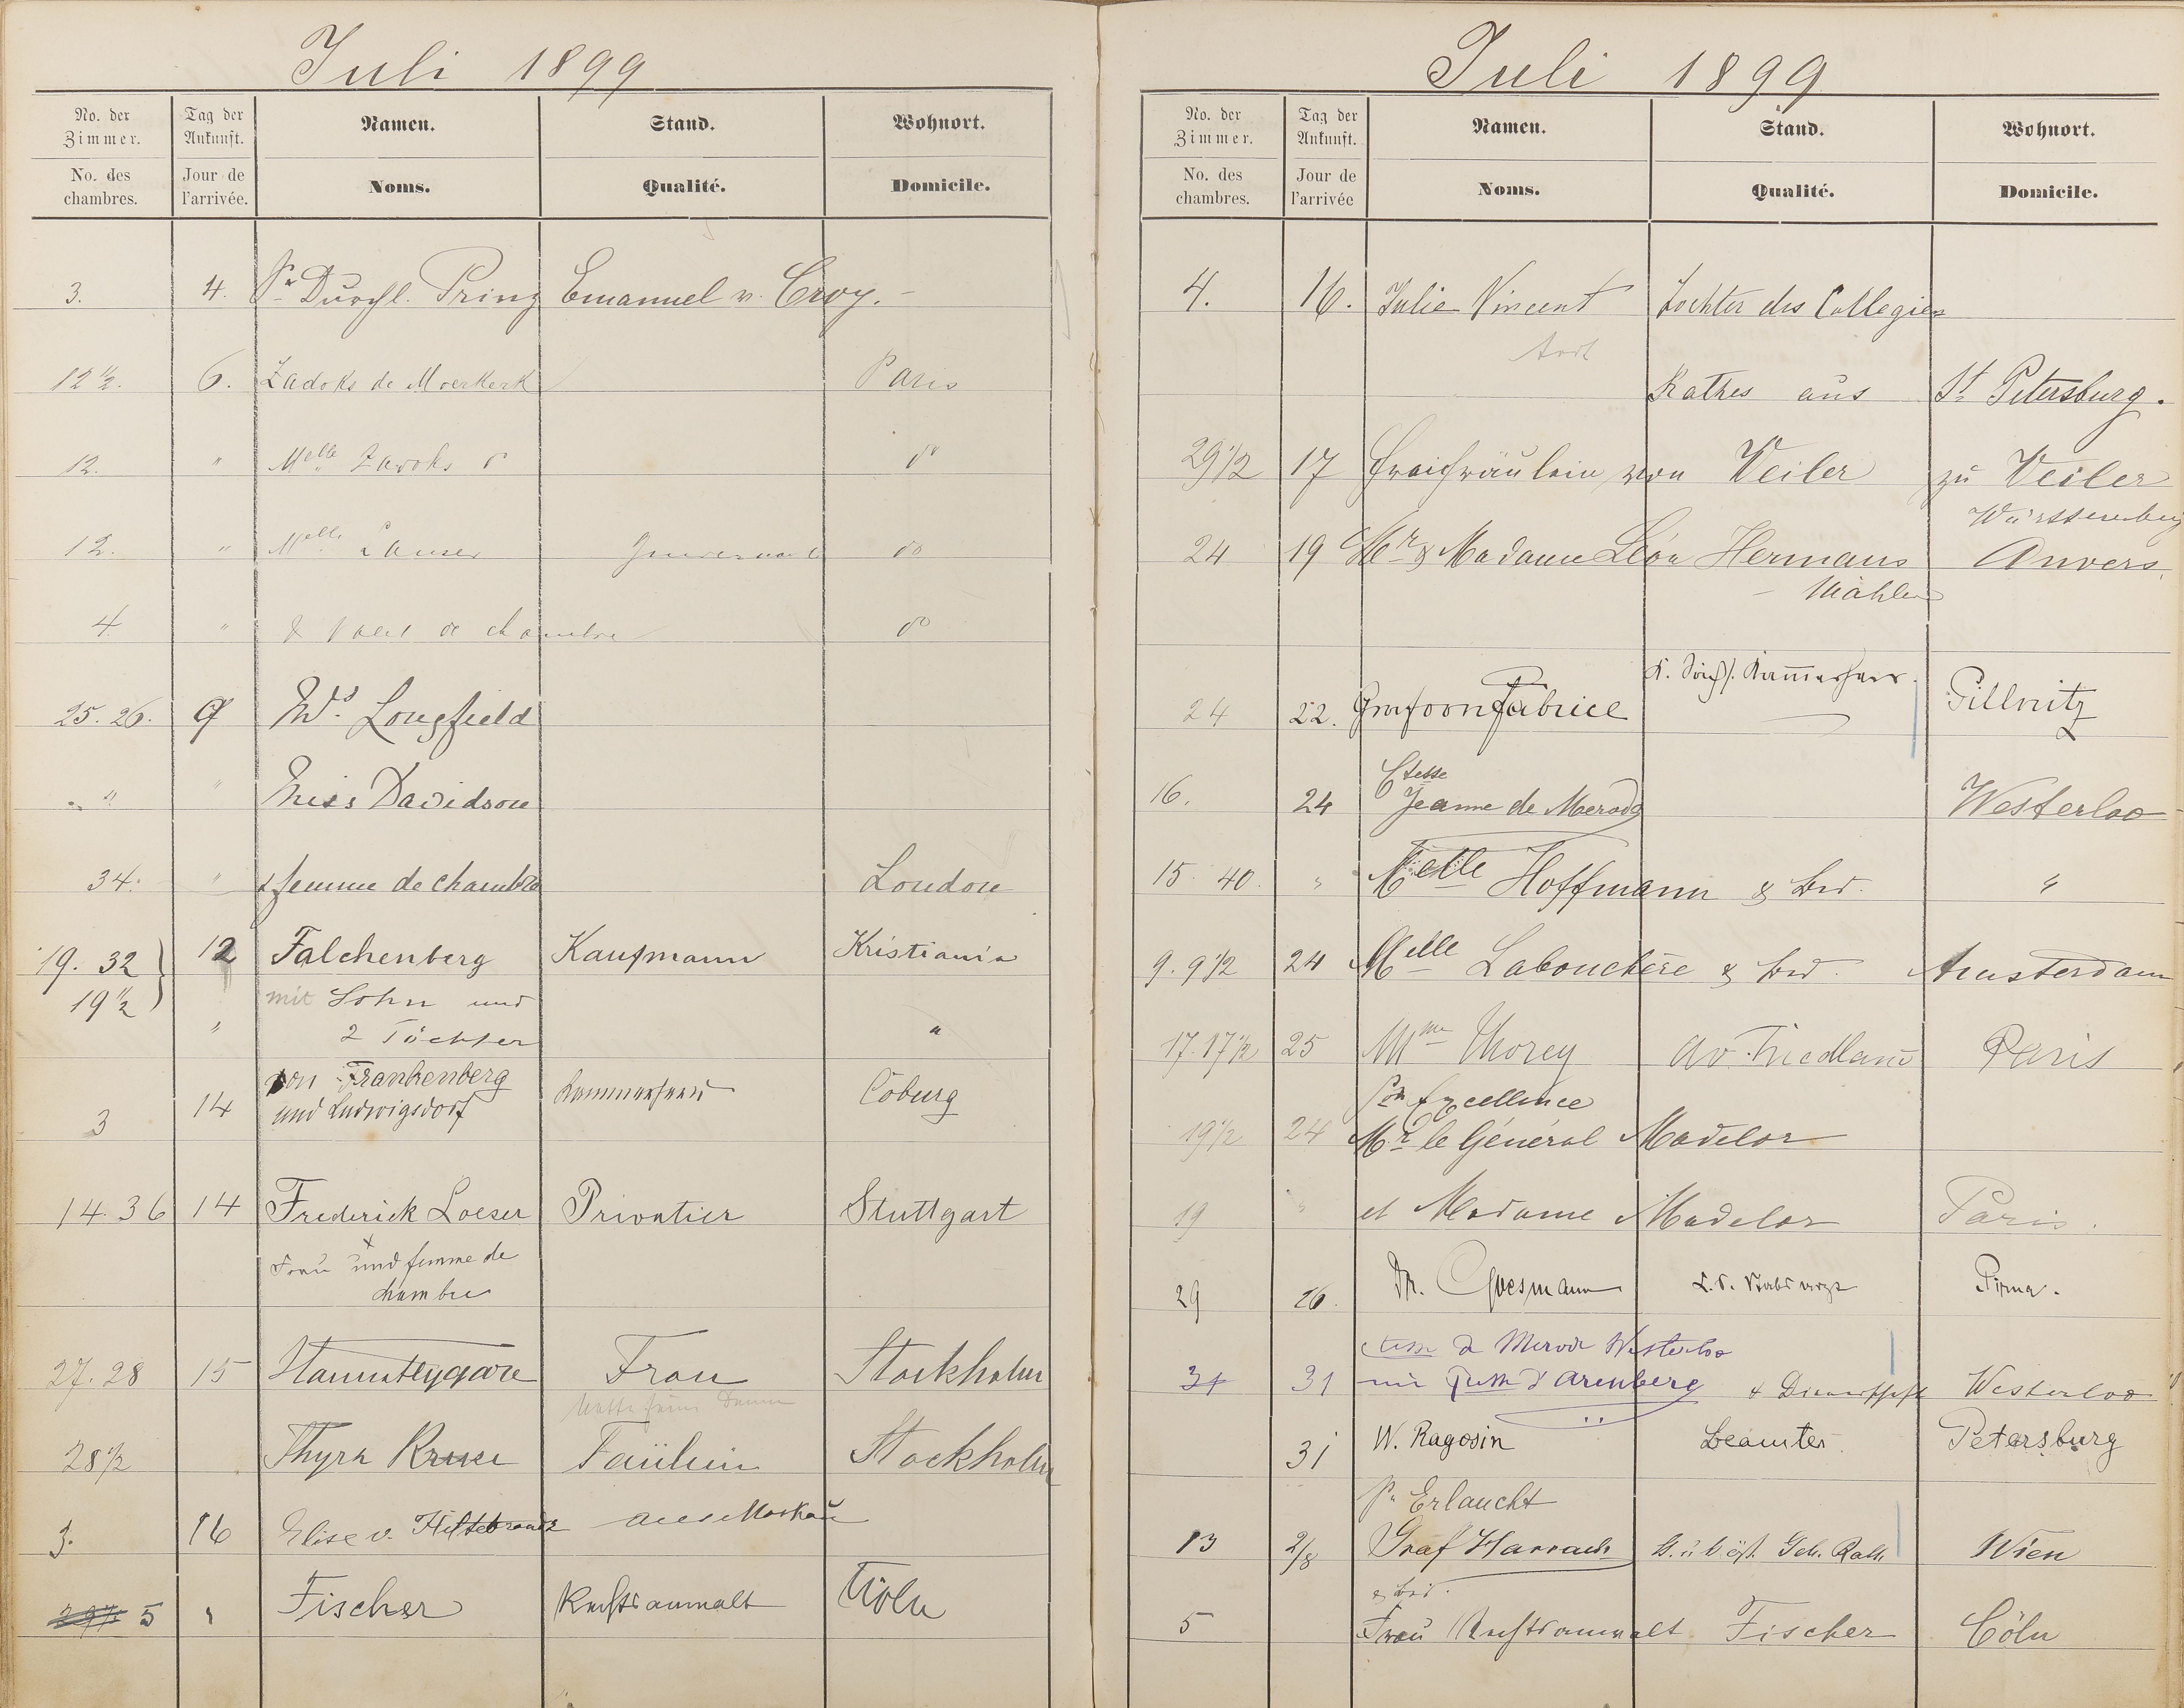 Juli 1899
No. der Zimmer. Tag der Ankunft. Namen. Stand. Wohnort.
No. des chambres. Jour de l'arrivée. Noms. Qualité. Domicile.
3. 4. Sr Durchl. Prinz Emanuel v. Croy.
12 1/2. 6. Zadoks de Moerkerk Paris
12. " Melle Zadoks do
12. " Melle do
4 " & Valet de chambre do
25. 26. 9 Longfield
" " Miss Davidson
34. " & femme de chambre London
19. 32 12 Falchenberg Kaufmann Kristiania
19 1/2 mit Sohn und
" 2 Töchter "
von Frankenberg
3 14 und Ludwigsdorf Kammerherr Coburg
14. 36 14 Frederick Loeser Privatier Stuttgart
Frau und femme de
chambre
27. 28 15 Frau Stockholm
28 1/2 Thyra Fäulein Stockholm
3. 16 Elise v. aus Moskau
5 " Fischer Rechtsanwalt Cöln
Juli 1899
No. der Zimmer. Tag der Ankunft. Namen. Stand. Wohnort.
No. des chambres. Jour de l'arrivée Noms. Qualité. Domicile.
4. 16. Julie Vincent Tochter des Collegien
Rathes aus St. Petersburg.
29 1/2 17 Freifräulein von Weiler zu Weiler
Württemberg
24 19 Mr & Madame Léon Hermans Anvers.
24 22. Graf von Fabrice K. Sächs. Kammerherr. Pillnitz
Ctesse
16. 24 Jeanne de Merode Westerloo
15 40. " Melle Hoffmann & bed. "
9. 9 1/2 24 Melle Labouchère & bed. Amsterdam
17. 17 1/2 25 Mme Thorey Av. Friedland Paris
Son Excellence
19 1/2 24 Mr le Général Madelor
19 " et Madame Madelor Paris.
29 26. Dr. Pirna.
Ctesse de Merode Westerloo
31 31 d'Arenberg & Dienerschaft Westerloo
31 W. Ragosin Beamter. Petersburg
Sr Erlaucht
13 2/8 Graf Harrach Geh. Rath. Wien
& bed.
5 Frau Rechtsanwalt Fischer Cöln